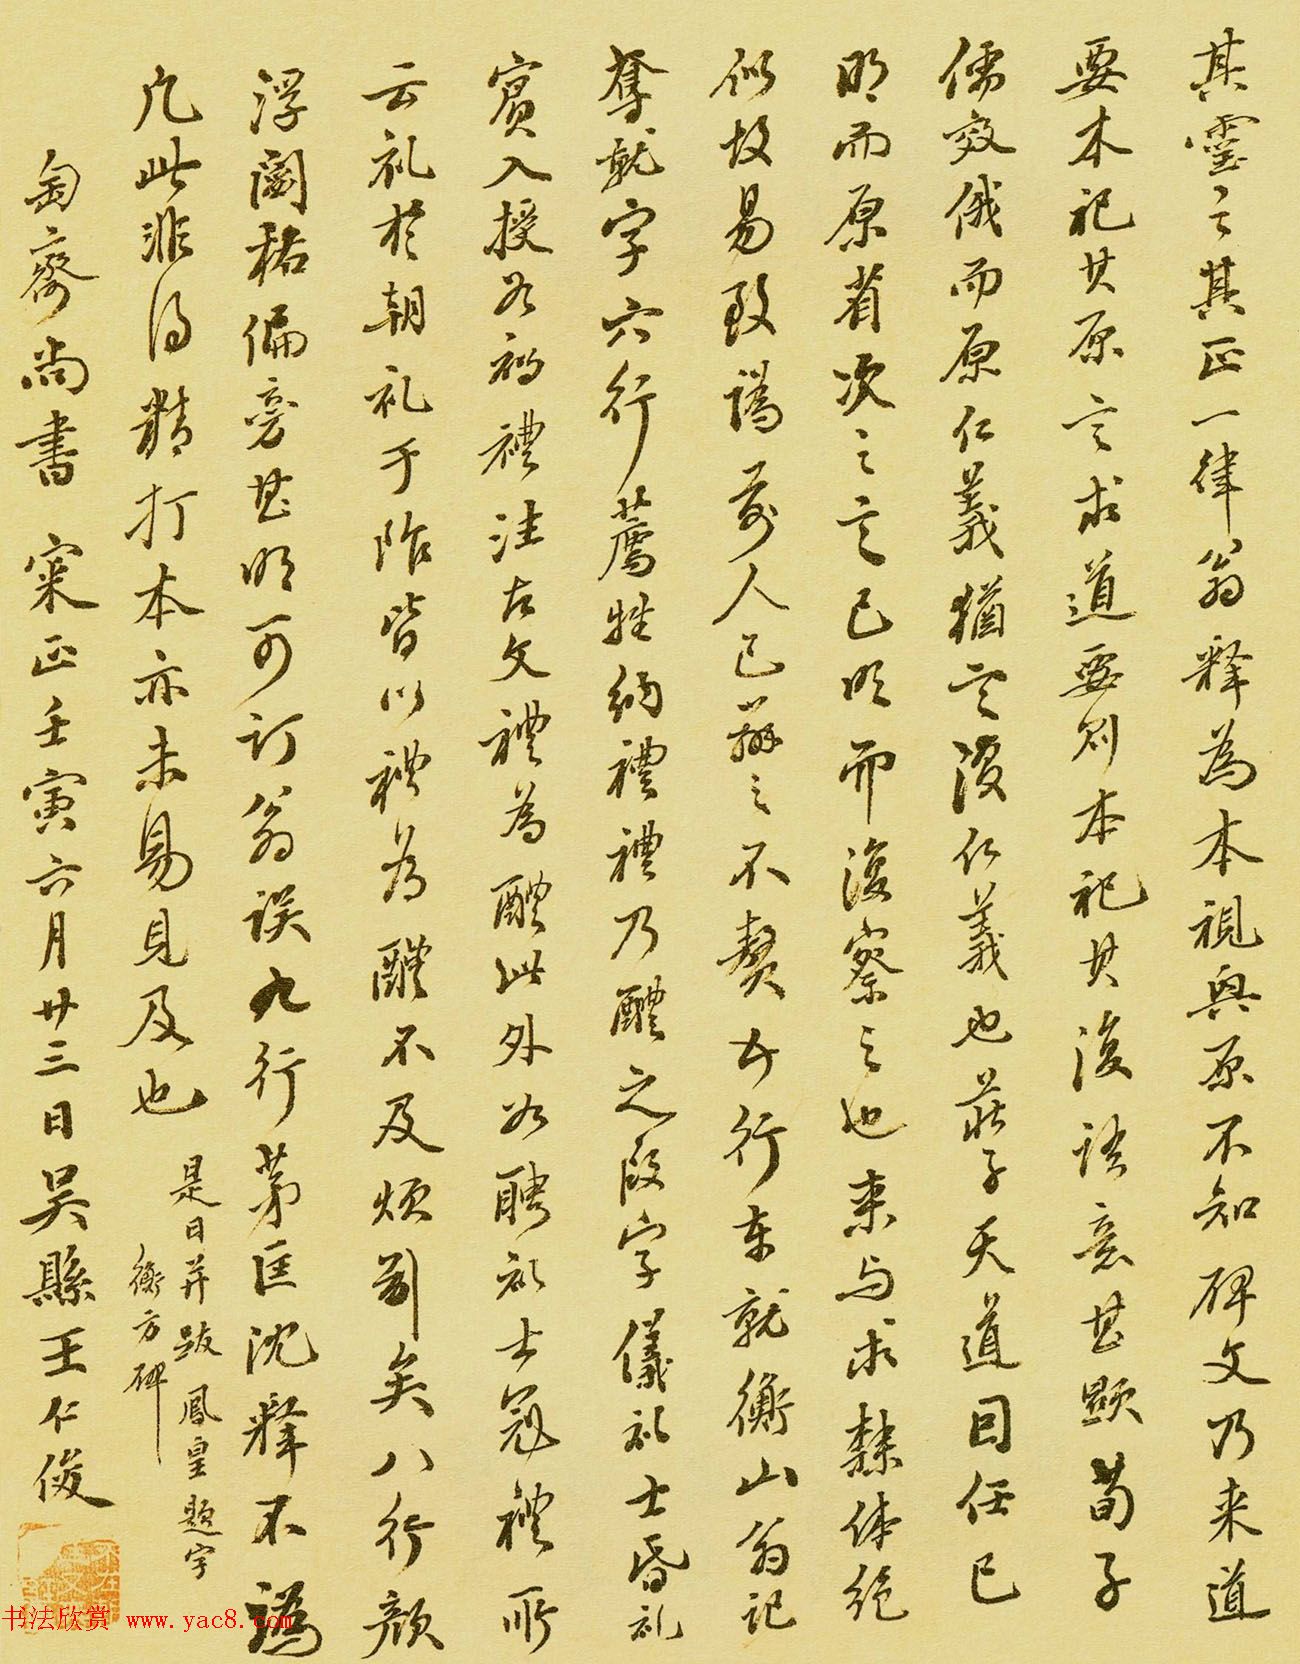 其靈之其正一律翁釋為本視與原不知碑文乃来道
要本祀其原言求道要則本祀其後語意甚顯荀子
儒效俄而原仁義猶言復仁義也莊子天道曰任已
明而原省次之言已明而復察之也来与求隸体絶
似故易致譌前人已辨之不贅七行車就衡山翁記
奪就字六行薦牲納禮禮乃醴之段字儀礼士昏礼
賓入授如初禮注古文禮為醴此外如聘礼士冠禮所
云礼於朝礼于阼皆以禮為醴不及煩引矣八行顏
浮閣祐偏旁甚明可訂翁誤九行茅匡沈釋不譌
凡此非得精打本亦未易見及也
是日并跋鳳皇題字
衡方碑
匋齋尚書 寀正壬寅六月廿三日吴縣王仁俊
书法欣赏 www.yac8.com